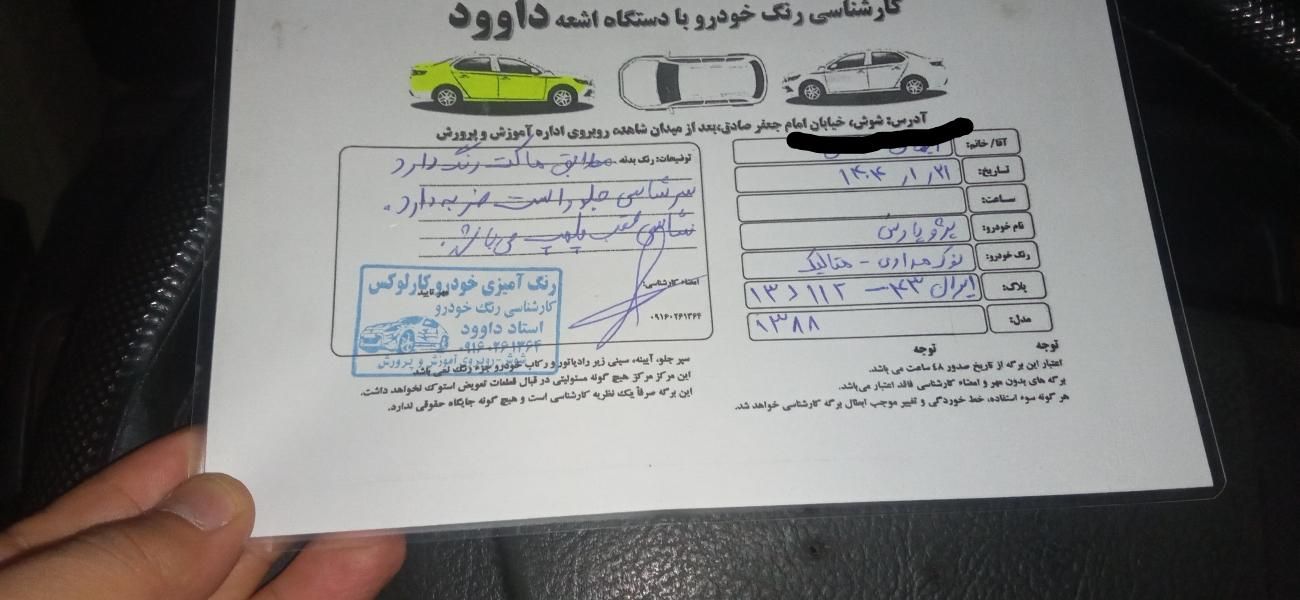 کارشناسی رنگ خودرو با دستگاه اشعه داوود
آدرس: شوش، خیابان امام جعفر صادق،بعد از میدان شاهد، روبروی اداره آموزش و پرورش
آقا/ خانم:
تاریخ: ۱۴۰۴/۱/۲۱
ساعت:
نام خودرو: پژو پارس
رنگ خودرو: نوک مدادی - متالیک
پلاک: ایران ۴۳ - ۱۱۲ د ۱۳
مدل: ۱۳۸۸
توضیحات: رنگ بدنه مطابق ماکت رنگ دارد
سرشاسی جلو راست ضربه دارد.
شاسی عقب پلمپ می‌باشد.
امضاء کارشناسی:
۰۹۱۶۰۲۶۱۳۶۴
مهر تایید
رنگ آمیزی خودرو کارلوکس
کارشناسی رنگ خودرو
استاد داوود
۰۹۱۶۰۲۶۱۳۶۴
شوش-روبروی آموزش و پرورش
توجه
توجه
اعتبار این برگه از تاریخ صدور ۴۸ ساعت می باشد.
برگه های بدون مهر و امضاء کارشناسی فاقد اعتبار می‌باشد.
هر گونه سوء استفاده، خط خوردگی و تغییر موجب ابطال برگه کارشناسی خواهد شد.
سپر جلو، آیینه، سینی زیر رادیاتور و رکاب خودرو جزء رنگ نمی باشد.
این مرکز مرکز هیچ گونه مسئولیتی در قبال قطعات تعویض استوک نخواهد داشت.
این برگه صرفاً یک نظریه کارشناسی است و هیچ گونه جایگاه حقوقی ندارد.